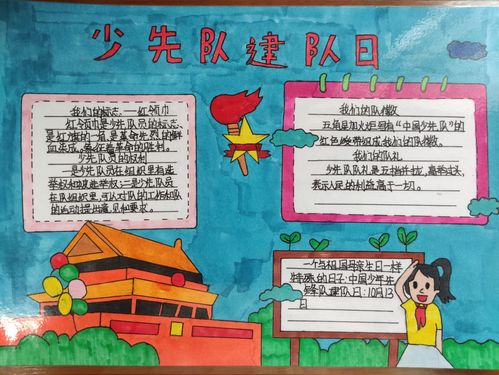 少先队建队日
我们的标志——红领巾
红领巾是少先队员的标志、
是红旗的一角，是革命先烈的鲜
血染成，象征着革命的胜利。
少先队员的权利
一是少先队员在组织里有选
举权和被选举权；二是少先队员
在队组织里，可以对队的工作和队
的活动提出意见和要求。
我们的队徽
五角星加火炬和写有“中国少先队”的
红色绶带组成我们的队徽。
我们的队礼
少先队队礼是五指并拢，高举过头，
表示人民的利益高于一切。
一个与祖国母亲生日一样
特殊的日子·中国少年先
锋队建队日：10月13
日